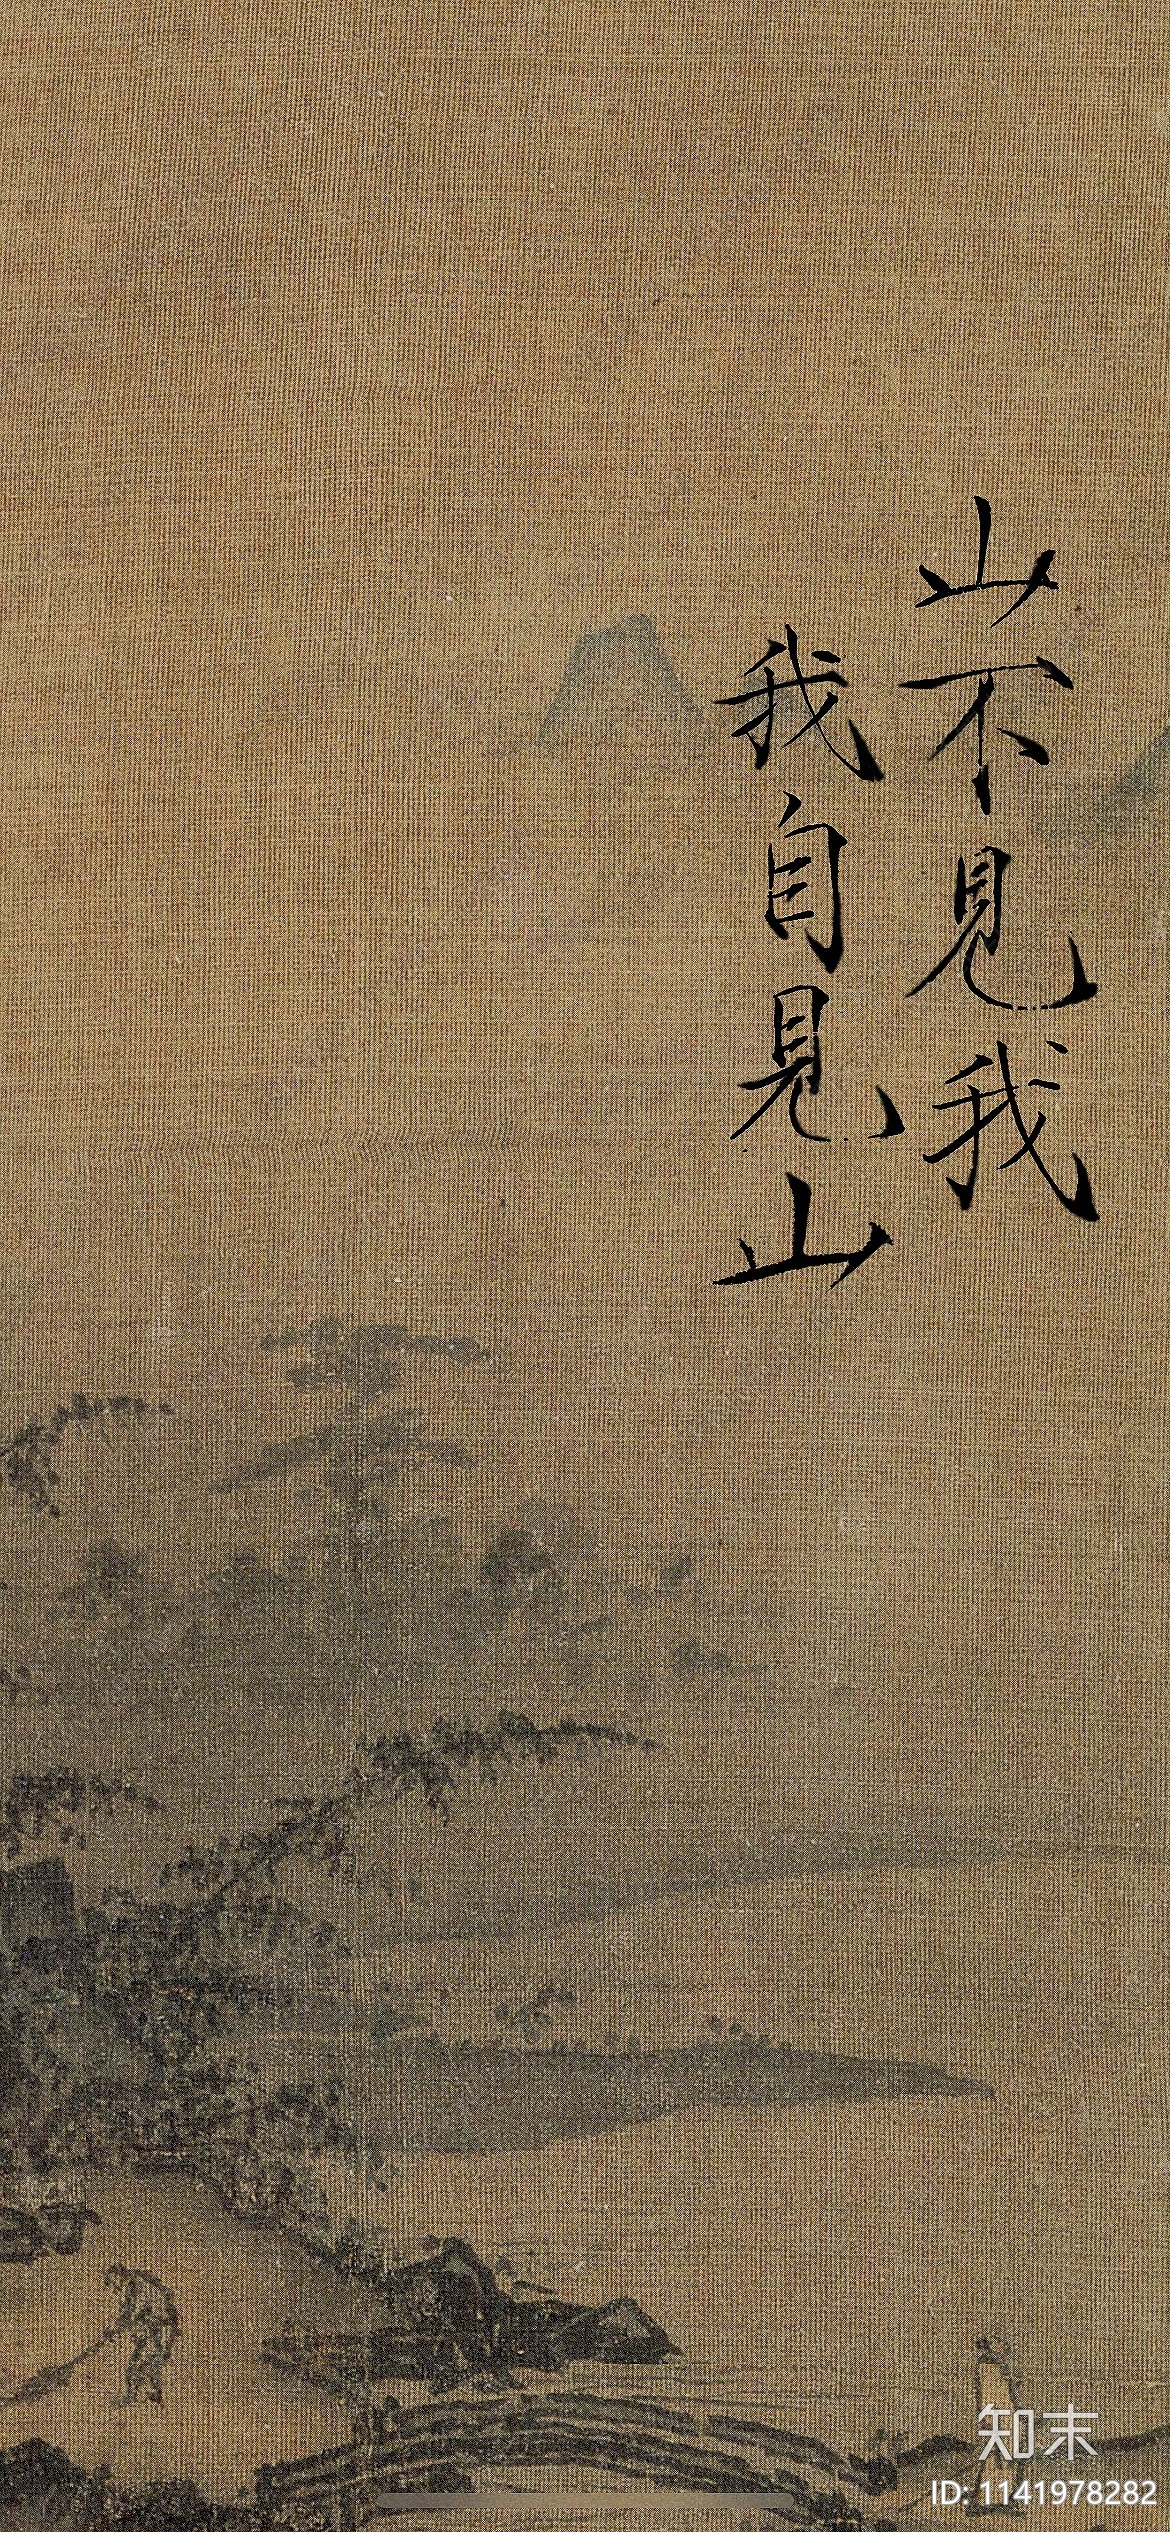 山不見我
我自見山
知末
ID: 1141978282